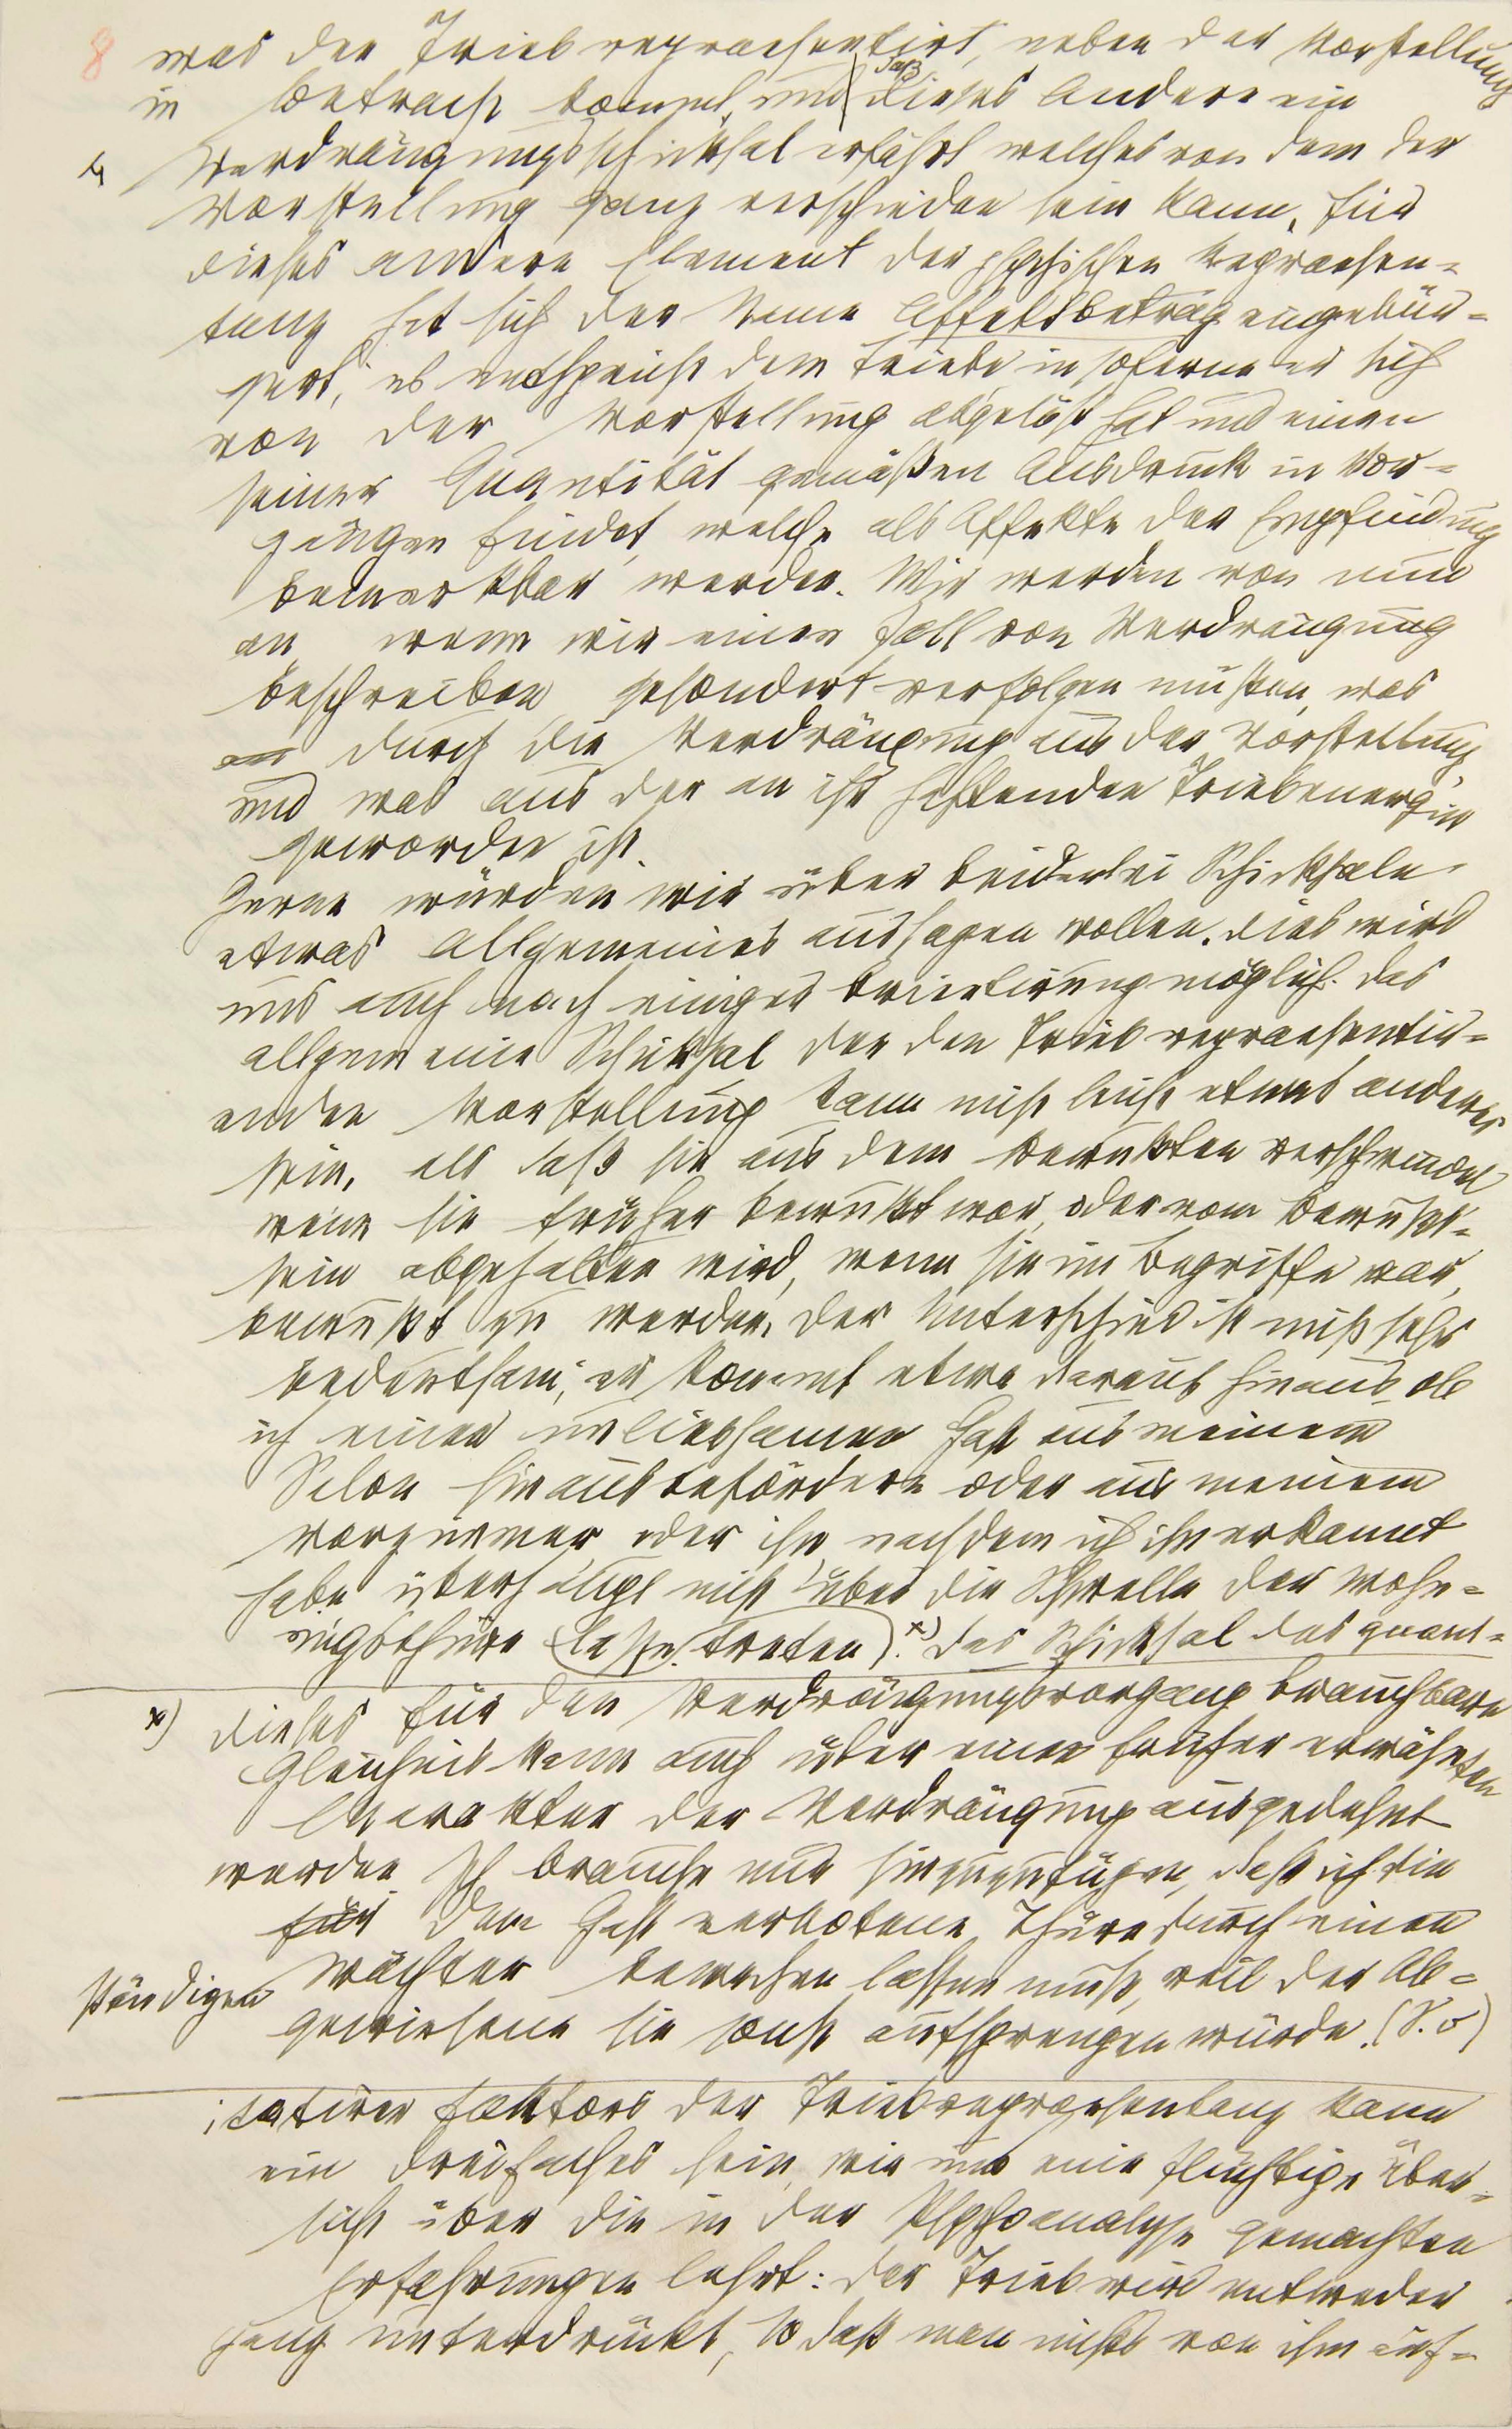 8 was den Trieb repraesentirt, neben der Vorstellung
in Betracht kommt, und daß dieses Andere ein
4 Verdrängungsschicksal erfährt welches von dem der
Vorstellung ganz verschieden sein kann. Für
dieses andere Element der psychischen Repraesen-
tanz hat sich der Name Affektbetrag eingebür-
gert; es entspricht dem Triebe, insoferne er sich
von der Vorstellung abgelöst hat und einen
seiner Quantität gemäßen Ausdruck in Vor-
gängen findet, welche als Affekte der Empfindung
bemerkbar werden. Wir werden von nun
an, wenn wir einen Fall von Verdrängung
beschreiben gesondert verfolgen müßen, was
durch die Verdrängung aus der Vorstellung
und was aus der an ihr haftenden Triebenergie
geworden ist.
Gerne würden wir über beiderlei Schicksale
etwas Allgemeines aussagen wollen. Dies wird
uns auch nach einiger Orientirung möglich. Das
allgemeine Schicksal der den Trieb repraesentir-
enden Vorstellung kann nicht leicht etwas anderes
sein, als daß sie aus dem Bewußten verschwindet
wenn sie früher bewußt war, oder vom Bewußt-
sein abgehalten wird, wenn sie im Begriffe war,
bewußt zu werden. Der Unterschied ist nicht sehr
bedeutsam; er kommt etwa darauf hinaus, ob
ich einen unliebsamen Gast aus meinem
Salon hinausbefördere oder aus meinem
Vorzimmer, oder ihn, nachdem ich ihn erkannt
habe überhaupt nicht über die Schwelle der Wohn-
ungsthüre laßen treten). x) Das Schicksal des quant-
x) Dieses für den Verdrängungsvorgang brauchbare
Gleichnis kann auch über einen früher erwähnten
Charakter der Verdrängung ausgedehnt
werden. Ich brauche nur hinzuzufügen, daß ich die
für dem Gast verbotene Thüre durch einen
ständigen Wächter bewachen lassen muß, weil der Ab-
gewiesene sie sonst aufsprengen würde. (S. o)
itativen Faktors der Triebrepraesentanz kann
ein dreifaches sein, wie uns eine flüchtige Über-
sicht über die in der Psychoanalyse gemachten
Erfahrungen lehrt: Der Trieb wird entweder
ganz unterdrückt, so daß man nichts von ihm auf-